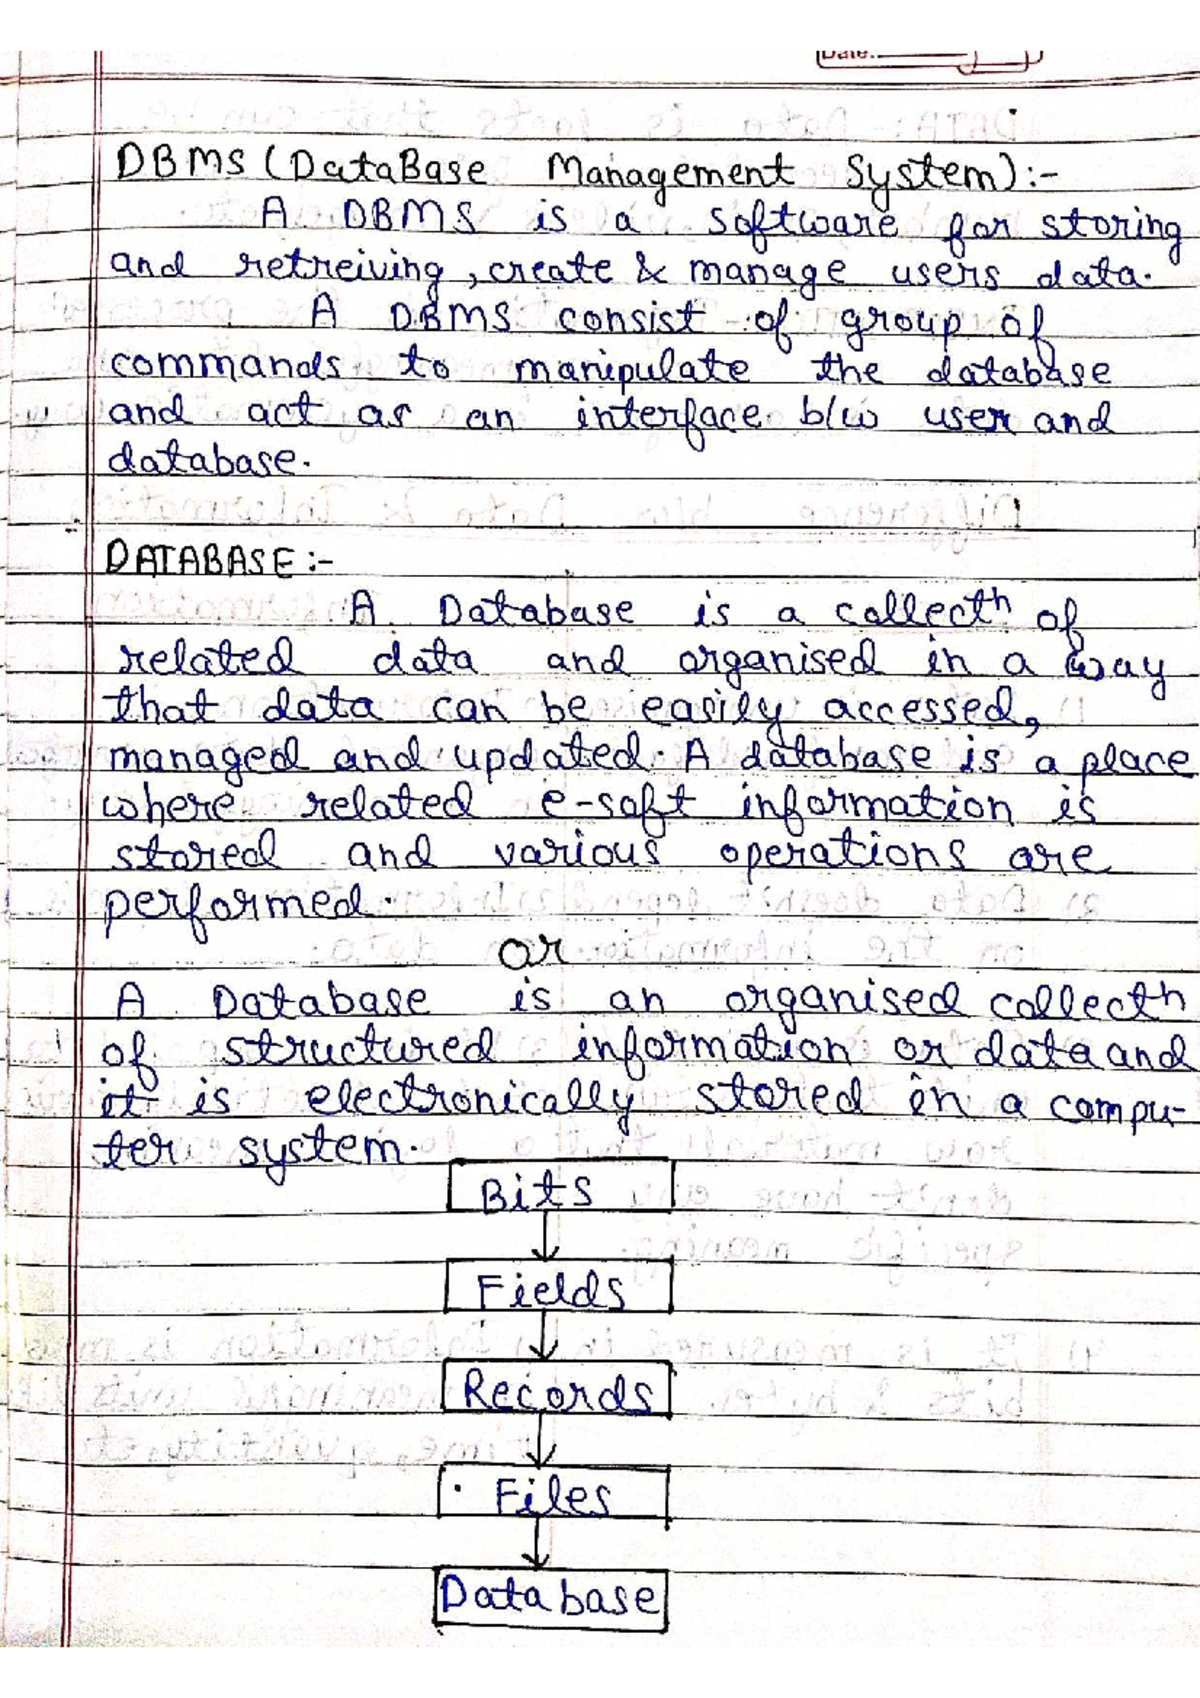 Date:
DBMS (DataBase Management System):-
A DBMS is a software for storing
and retreiving, create & manage users data.
A DBMS consist of group of
commands to manipulate the database
and act as an interface b/w user and
database.
DATABASE:-
A Database is a collectn of
related data and organised in a way
that data can be easily accessed,
managed and updated. A database is a place
where related e-soft information is
stored and various operations are
performed.
or
A Database is an organised collectn
of structured information or data and
it is electronically stored in a compu-
ter system.
Bits
Fields
Records
Files
Database